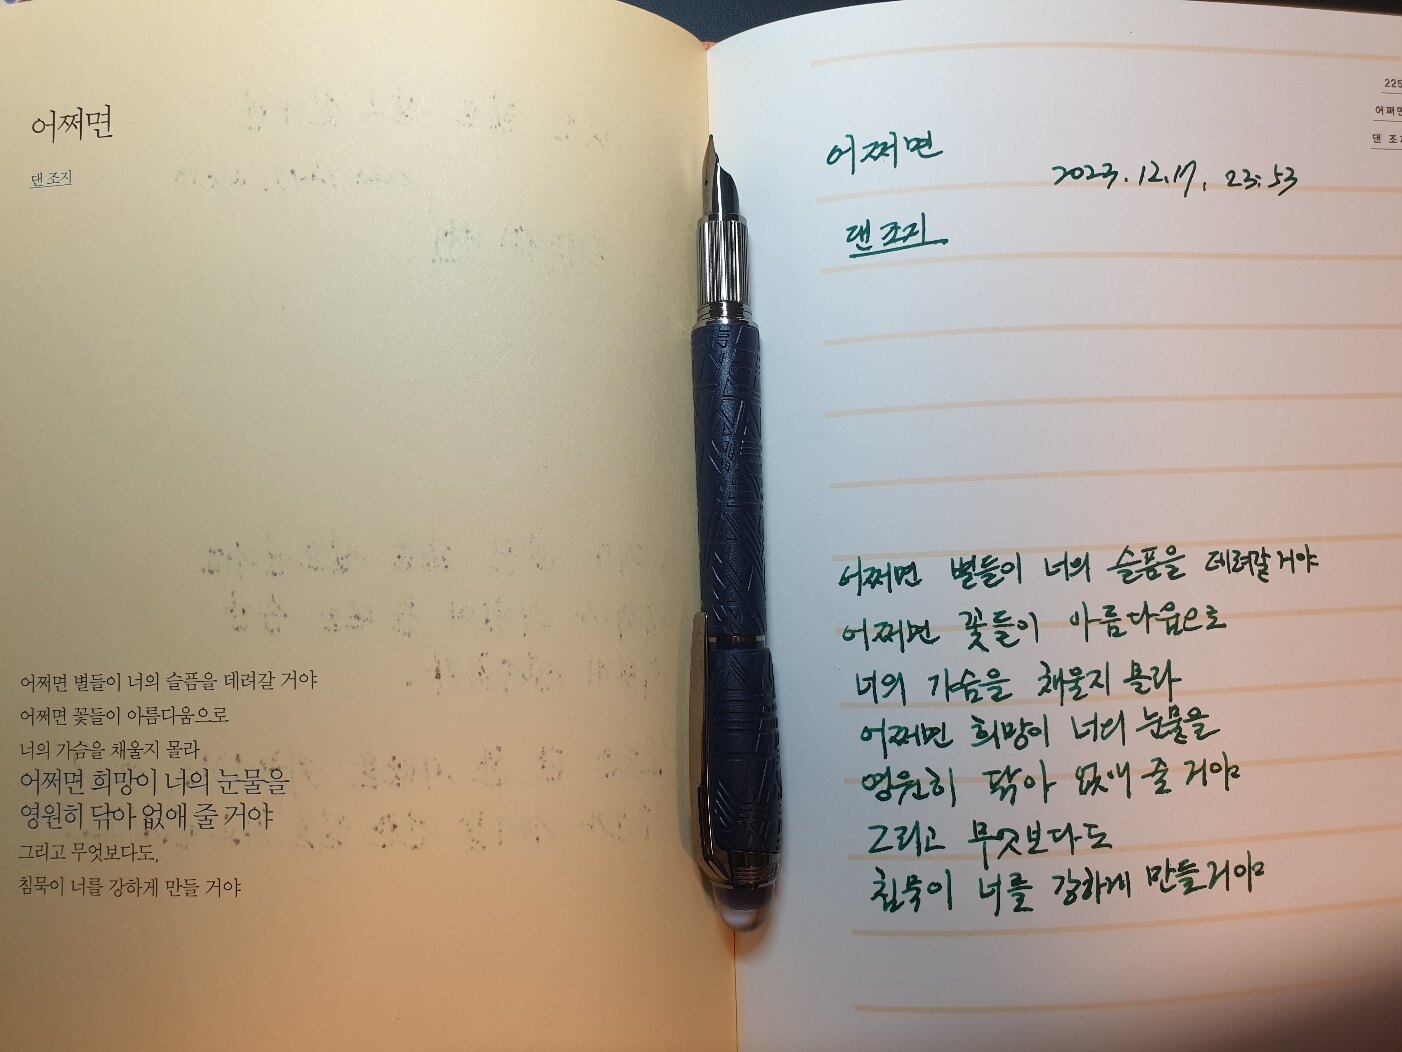 어쩌면
댄 조지
어쩌면 별들이 너의 슬픔을 데려갈 거야
어쩌면 꽃들이 아름다움으로
너의 가슴을 채울지 몰라
어쩌면 희망이 너의 눈물을
영원히 닦아 없애 줄 거야
그리고 무엇보다도,
침묵이 너를 강하게 만들 거야
225
어쩌면
댄 조지
어쩌면
2023. 12. 17. 23:53
댄 조지
어쩌면 별들이 너의 슬픔을 데려갈 거야
어쩌면 꽃들이 아름다움으로
너의 가슴을 채울지 몰라
어쩌면 희망이 너의 눈물을
영원히 닦아 없애 줄 거야
그리고 무엇보다도
침묵이 너를 강하게 만들거야